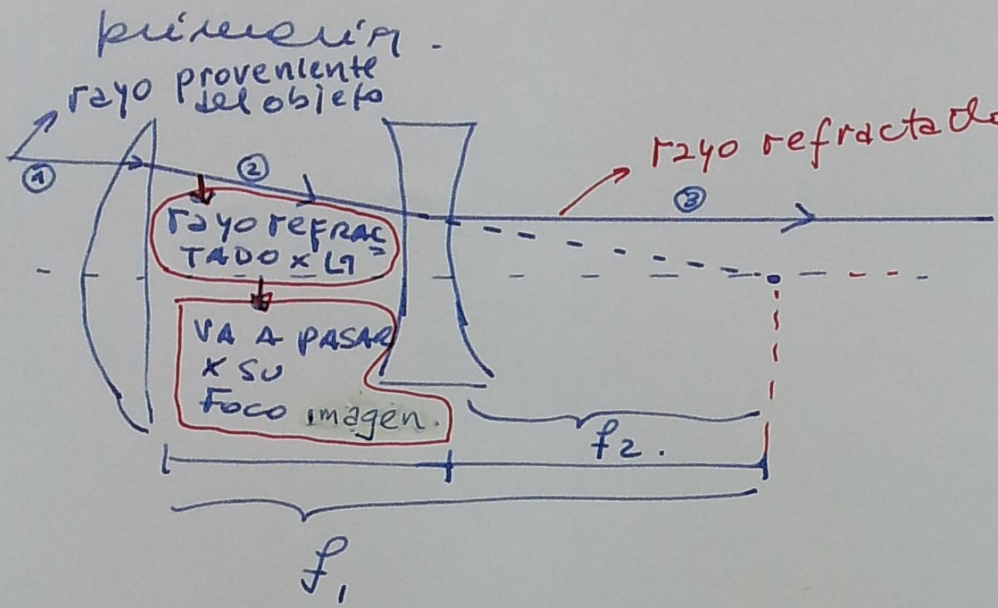 primeria.
rayo proveniente
del objeto
①
②
③
rayo refractado
rayo refrac
TADO x L1
VA A PASAR
x su
Foco imagen.
f2.
f1